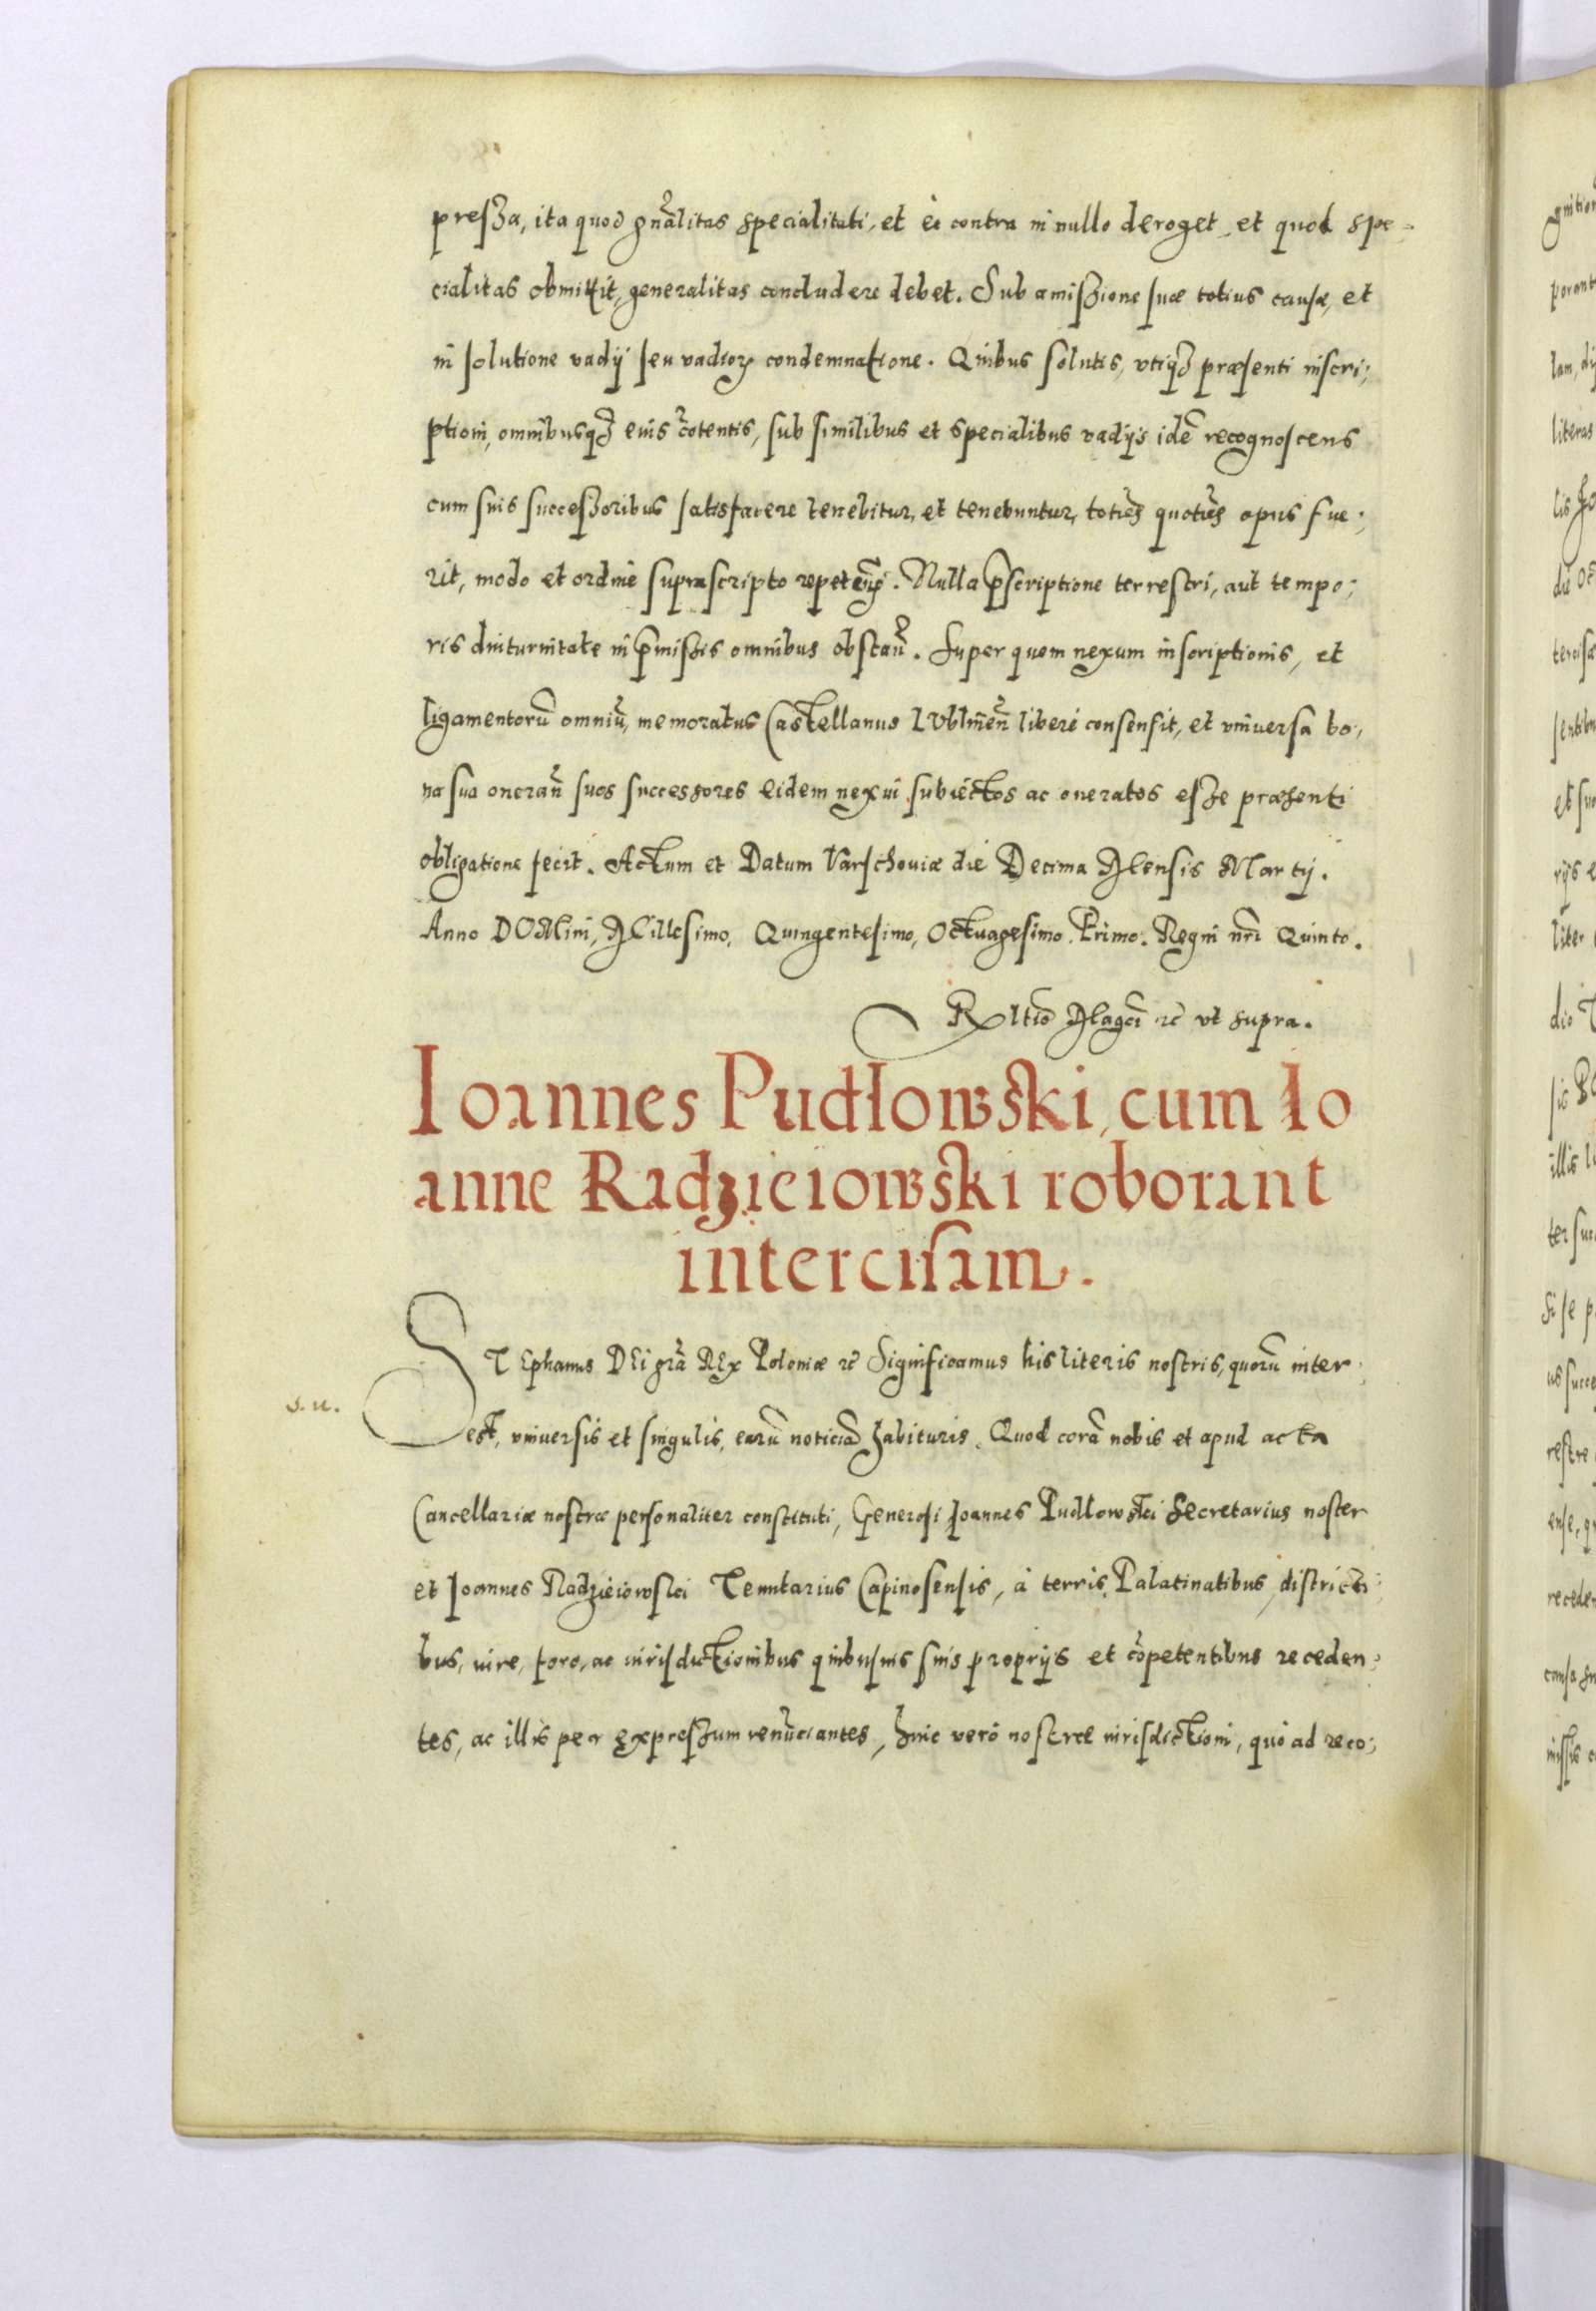 preſʒa, ita quod gn̄alitas specialitati, et è contra in nullo deroget, et quod spe-
cialitas obmittit, generalitas concludere debet. Sub amiſʒione ſuæ totius cauſæ, et
in ſolutione vadÿ ſeu vadioꝝ condemnatione. Quibus ſolutis, vtiqʒ præſenti inſcri;
ptioni, omnibusqʒ eius cōtentis, ſub ſimilibus et specialibus vadÿs idē recognoſcens
cum ſuis ſucceſʒoribus ſatisfacere tenebitur, et tenebuntur, toties quoties opus fue;
rit, modo et ordine ſupraſcripto repeteñ. Nulla p̄ſcriptione terreſtri, aut tempo;
ris diuturnitate in p̄miſʒis omnibus obſtañ. Super quem nexum inſcriptionis, et
ligamentorū omniū, memoratus Caſtellanus LVblineñ liberè conſenſit, et vniuerſa bo,
na ſua onerañ ſuos ſucceſsores eidem nexui ſubiectos ac oneratos eſʒe præſenti
obligatione fecit. Actum et Datum Varſchouiæ die Decima Menſis Martÿ.
Anno DOMini, Milleſimo, Quingenteſimo, Octuageſimo Primo. Regni nr̄i Quinto.
Rltio Magci ꝛc̄ vt supra.
Ioannes Pudłowski, cum Io
anne Radzieiowski roborant
interciſam.
STEphanus DEi grā REx Poloniæ ꝛc̄ Significamus his literis noſtris, quorū inter;
s. u.
eſt, vniuerſis et ſingulis, earū noticiā habituris. Quod corā nobis et apud acta
Cancellariæ noſtræ perſonaliter conſtituti, Generoſi Ioannes Pudłowſki Secretarius noſter
et Ioannes Radzieiowſki Tenutarius Capinoſenſis, à terris, Palatinatibus, diſtricti;
bus, iure, foro, ac iuriſdictionibus quibuſuis ſuis proprÿs et cōpetentibus receden;
tes, ac illis per expreſʒum renūciantes, huic verò noſtræ iuriſdictioni, quò ad reco;